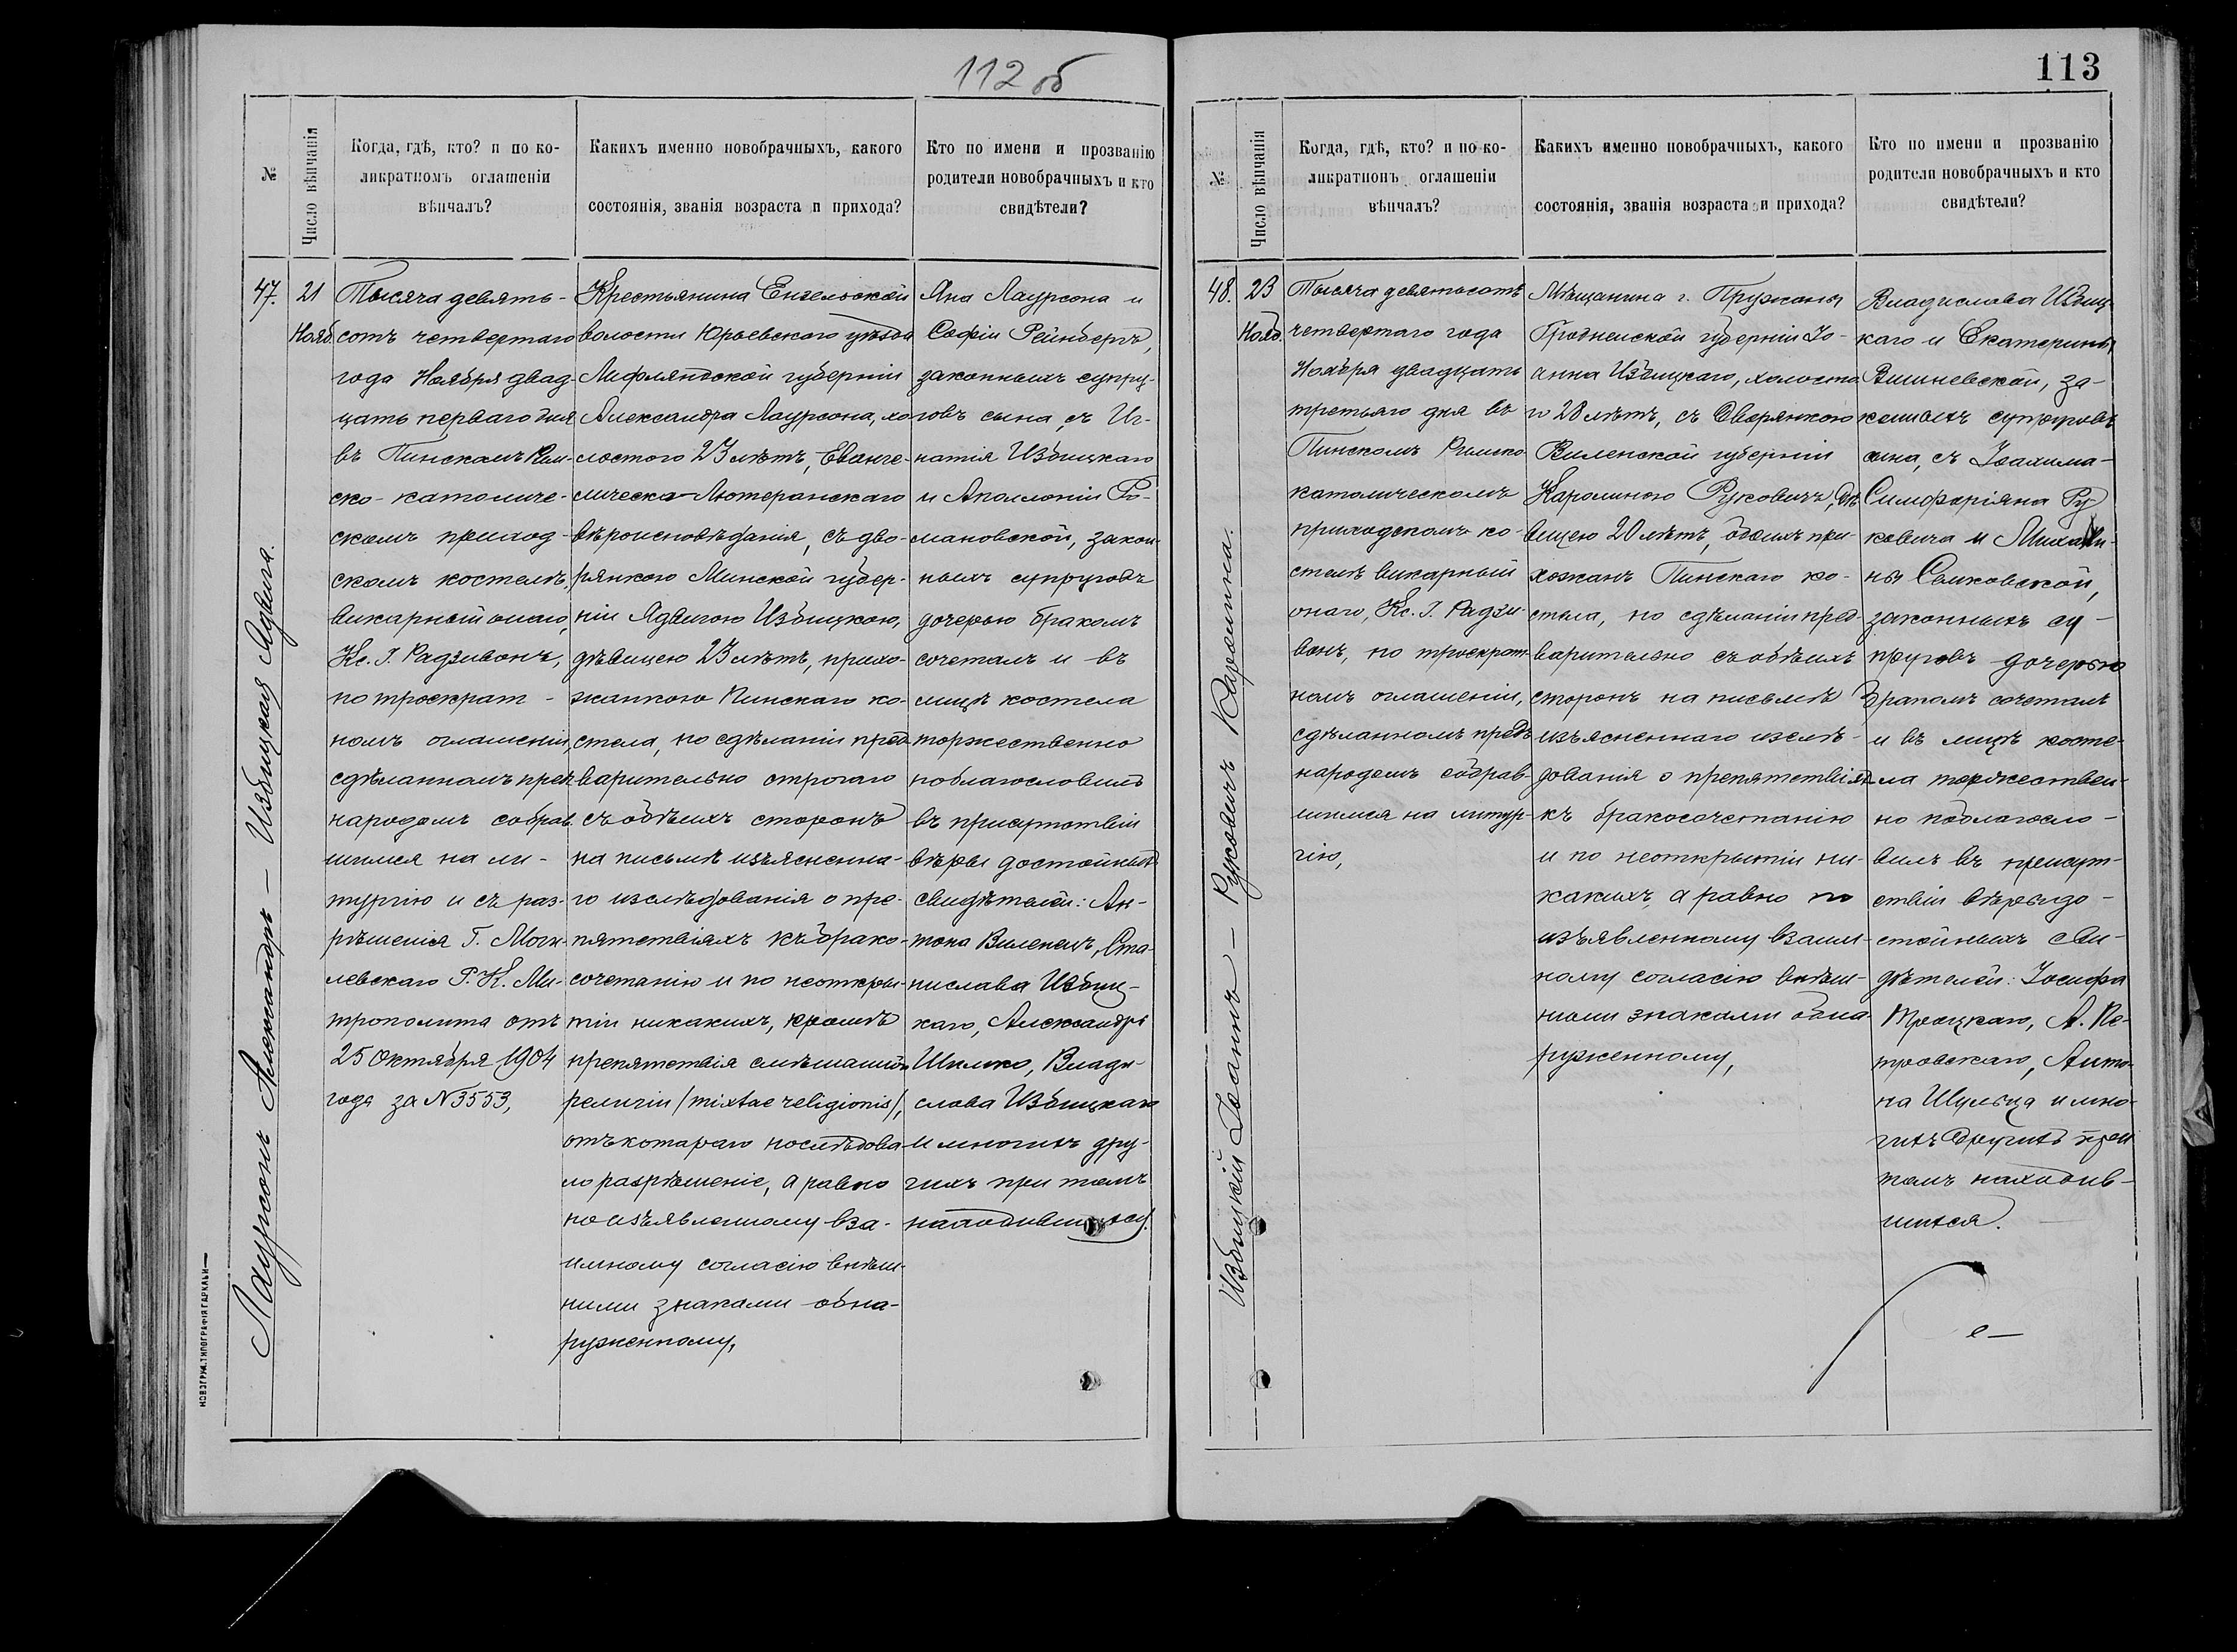 112 об
№
Число вѣнчанія
Когда, гдѣ, кто? и по ко-
ликратномъ оглашеніи
вѣнчалъ?
Какихъ именно новобрачныхъ, какого
состоянія, званія возраста и прихода?
Кто по имени и прозванію
родители новобрачныхъ и кто
свидѣтели?
47.
21
Нояб.
Лаурсонъ Александръ — Избицкая Ядвига.
Тысяча девять-
сотъ четвертаго
года Ноября двад-
цать перваго дня
въ Пинскомъ Рим-
ско-католиче-
скомъ приход-
скомъ костелѣ,
викарный онаго,
Кс. І. Радзивонъ,
по троекрат-
номъ оглашеніи,
сдѣланномъ пред
народомъ собрав-
шимся на ли-
тургію и съ раз-
рѣшенія Г. Моги-
левскаго Р. К. Ми-
трополита отъ
25 Октября 1904
года за N 3553,
Крестьянина
волости Юрьевскаго уѣзда
Лифляндской губерніи
Александра Лаурсона, хо-
лостого 23 лѣтъ, Еванге-
лическо-Лютеранскаго
вѣроисповѣданія, съ дво-
рянкою Минской губер-
ніи Ядвигою Избицкою,
дѣвицею 23 лѣтъ, прихо-
жанкою Пинскаго ко-
стела, по сдѣланіи пред-
варительно строгаго
съ обѣихъ сторонъ
на письмѣ изъясненна-
го изслѣдованія о пре-
пятствіяхъ къ брако-
сочетанію и по неоткры-
тіи никакихъ, кромѣ
препятствія смѣшанной
религіи /mixtae religionis/,
отъ котораго послѣдова-
ло разрѣшеніе, а равно
по изъявленному вза-
имному согласію внѣш-
ними знаками обна-
руженному,
Яна Лаурсона и
Софіи Рейнбергъ,
законныхъ супру-
говъ сына, съ Иг-
натія Избицкаго
и Аполлоніи Ро-
мановской, закон-
ныхъ супруговъ
дочерью бракомъ
сочеталъ и въ
лицѣ костела
торжественно
поблагословилъ
въ присутствіи
вѣры достойныхъ
свидѣтелей: Ан-
тона Виленчъ, Ста-
нислава Избиц-
каго, Александра
Шилко, Влади-
слава Избицкаго
и многихъ дру-
гихъ при томъ
находившихся.
НОВОГРУД. ТИПОГРАФІЯ ГАРКАВИ
113
№
Число вѣнчанія
Когда, гдѣ, кто? и по ко-
ликратномъ оглашеніи
вѣнчалъ?
Какихъ именно новобрачныхъ, какого
состоянія, званія возраста и прихода?
Кто по имени и прозванію
родители новобрачныхъ и кто
свидѣтели?
48.
23
Нояб.
Избицкій Іоаннъ — Руковичъ Каролина.
Тысяча девятьсотъ
четвертаго года
Ноября двадцать
третьяго дня въ
Пинскомъ Римско
католическомъ
приходскомъ ко-
стелѣ викарный
онаго, Кс. І. Радзи-
вонъ, по троекрат-
номъ оглашеніи,
сдѣланномъ предъ
народомъ собрав-
шимся на литур-
гію,
Мѣщанина г. Пружаны
Гродненской губерніи Іо-
анна Избицкаго, холосто-
го 28 лѣтъ, съ Дворянкою
Виленской губерніи
Каролиною Руковичъ, дѣ-
вицею 20 лѣтъ, обоихъ при-
хожанъ Пинскаго ко-
стела, по сдѣланіи пред-
варительно съ обѣихъ
сторонъ на письмѣ
изъясненнаго изслѣ-
дованія о препятствіяхъ
къ бракосочетанію
и по неоткрытіи ни-
какихъ, а равно по
изъявленному взаим-
ному согласію внѣш-
ними знаками обна-
руженному,
Владислава Избиц-
каго и Екатерины
Вишневской, за-
конныхъ супруговъ
сына, съ Іоахима-
Симфоріяна Ру-
ковича и Михали-
ны
законныхъ су-
пруговъ дочерью
бракомъ сочеталъ
и въ лицѣ косте-
ла торжествен-
но поблагосло-
вилъ въ присут-
ствіи вѣры до-
стойныхъ сви-
дѣтелей: Іосифа
Троцкаго, А. Пе-
тровскаго, Анто-
на Шульца и мно-
гихъ другихъ при
томъ находив-
шихся.